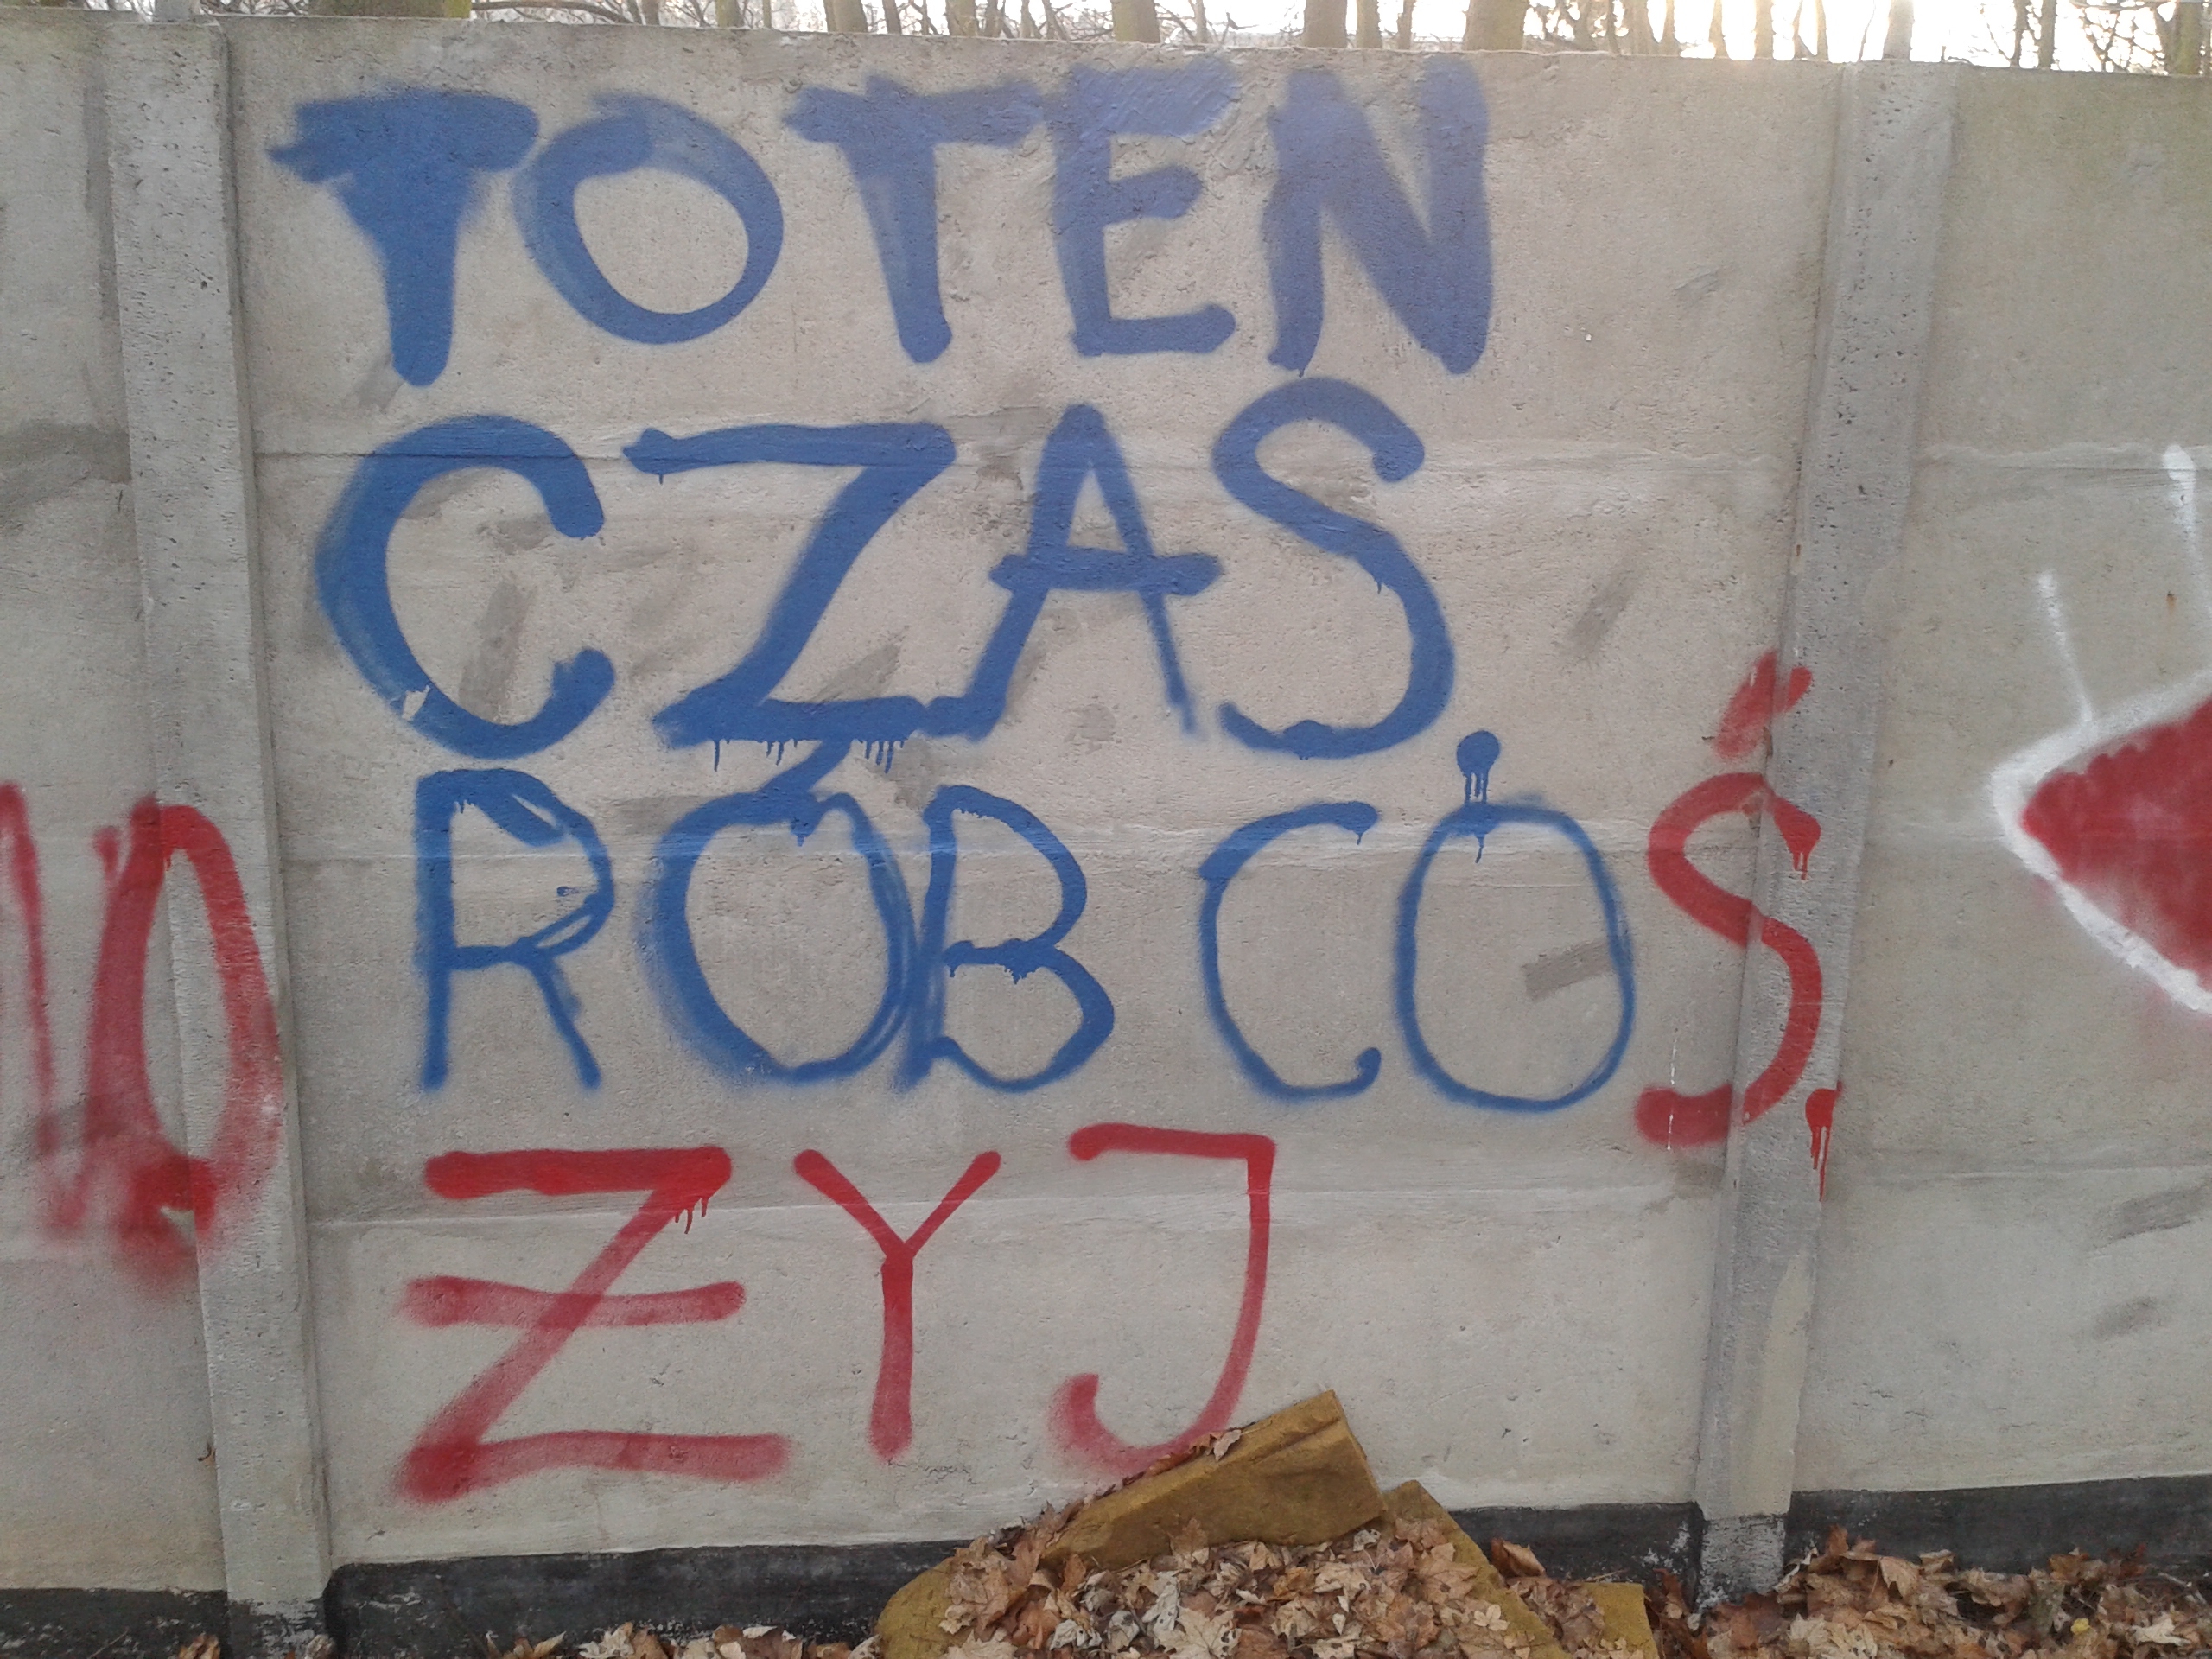 TO TEN
CZAS.
RÓB COŚ.
ŻYJ